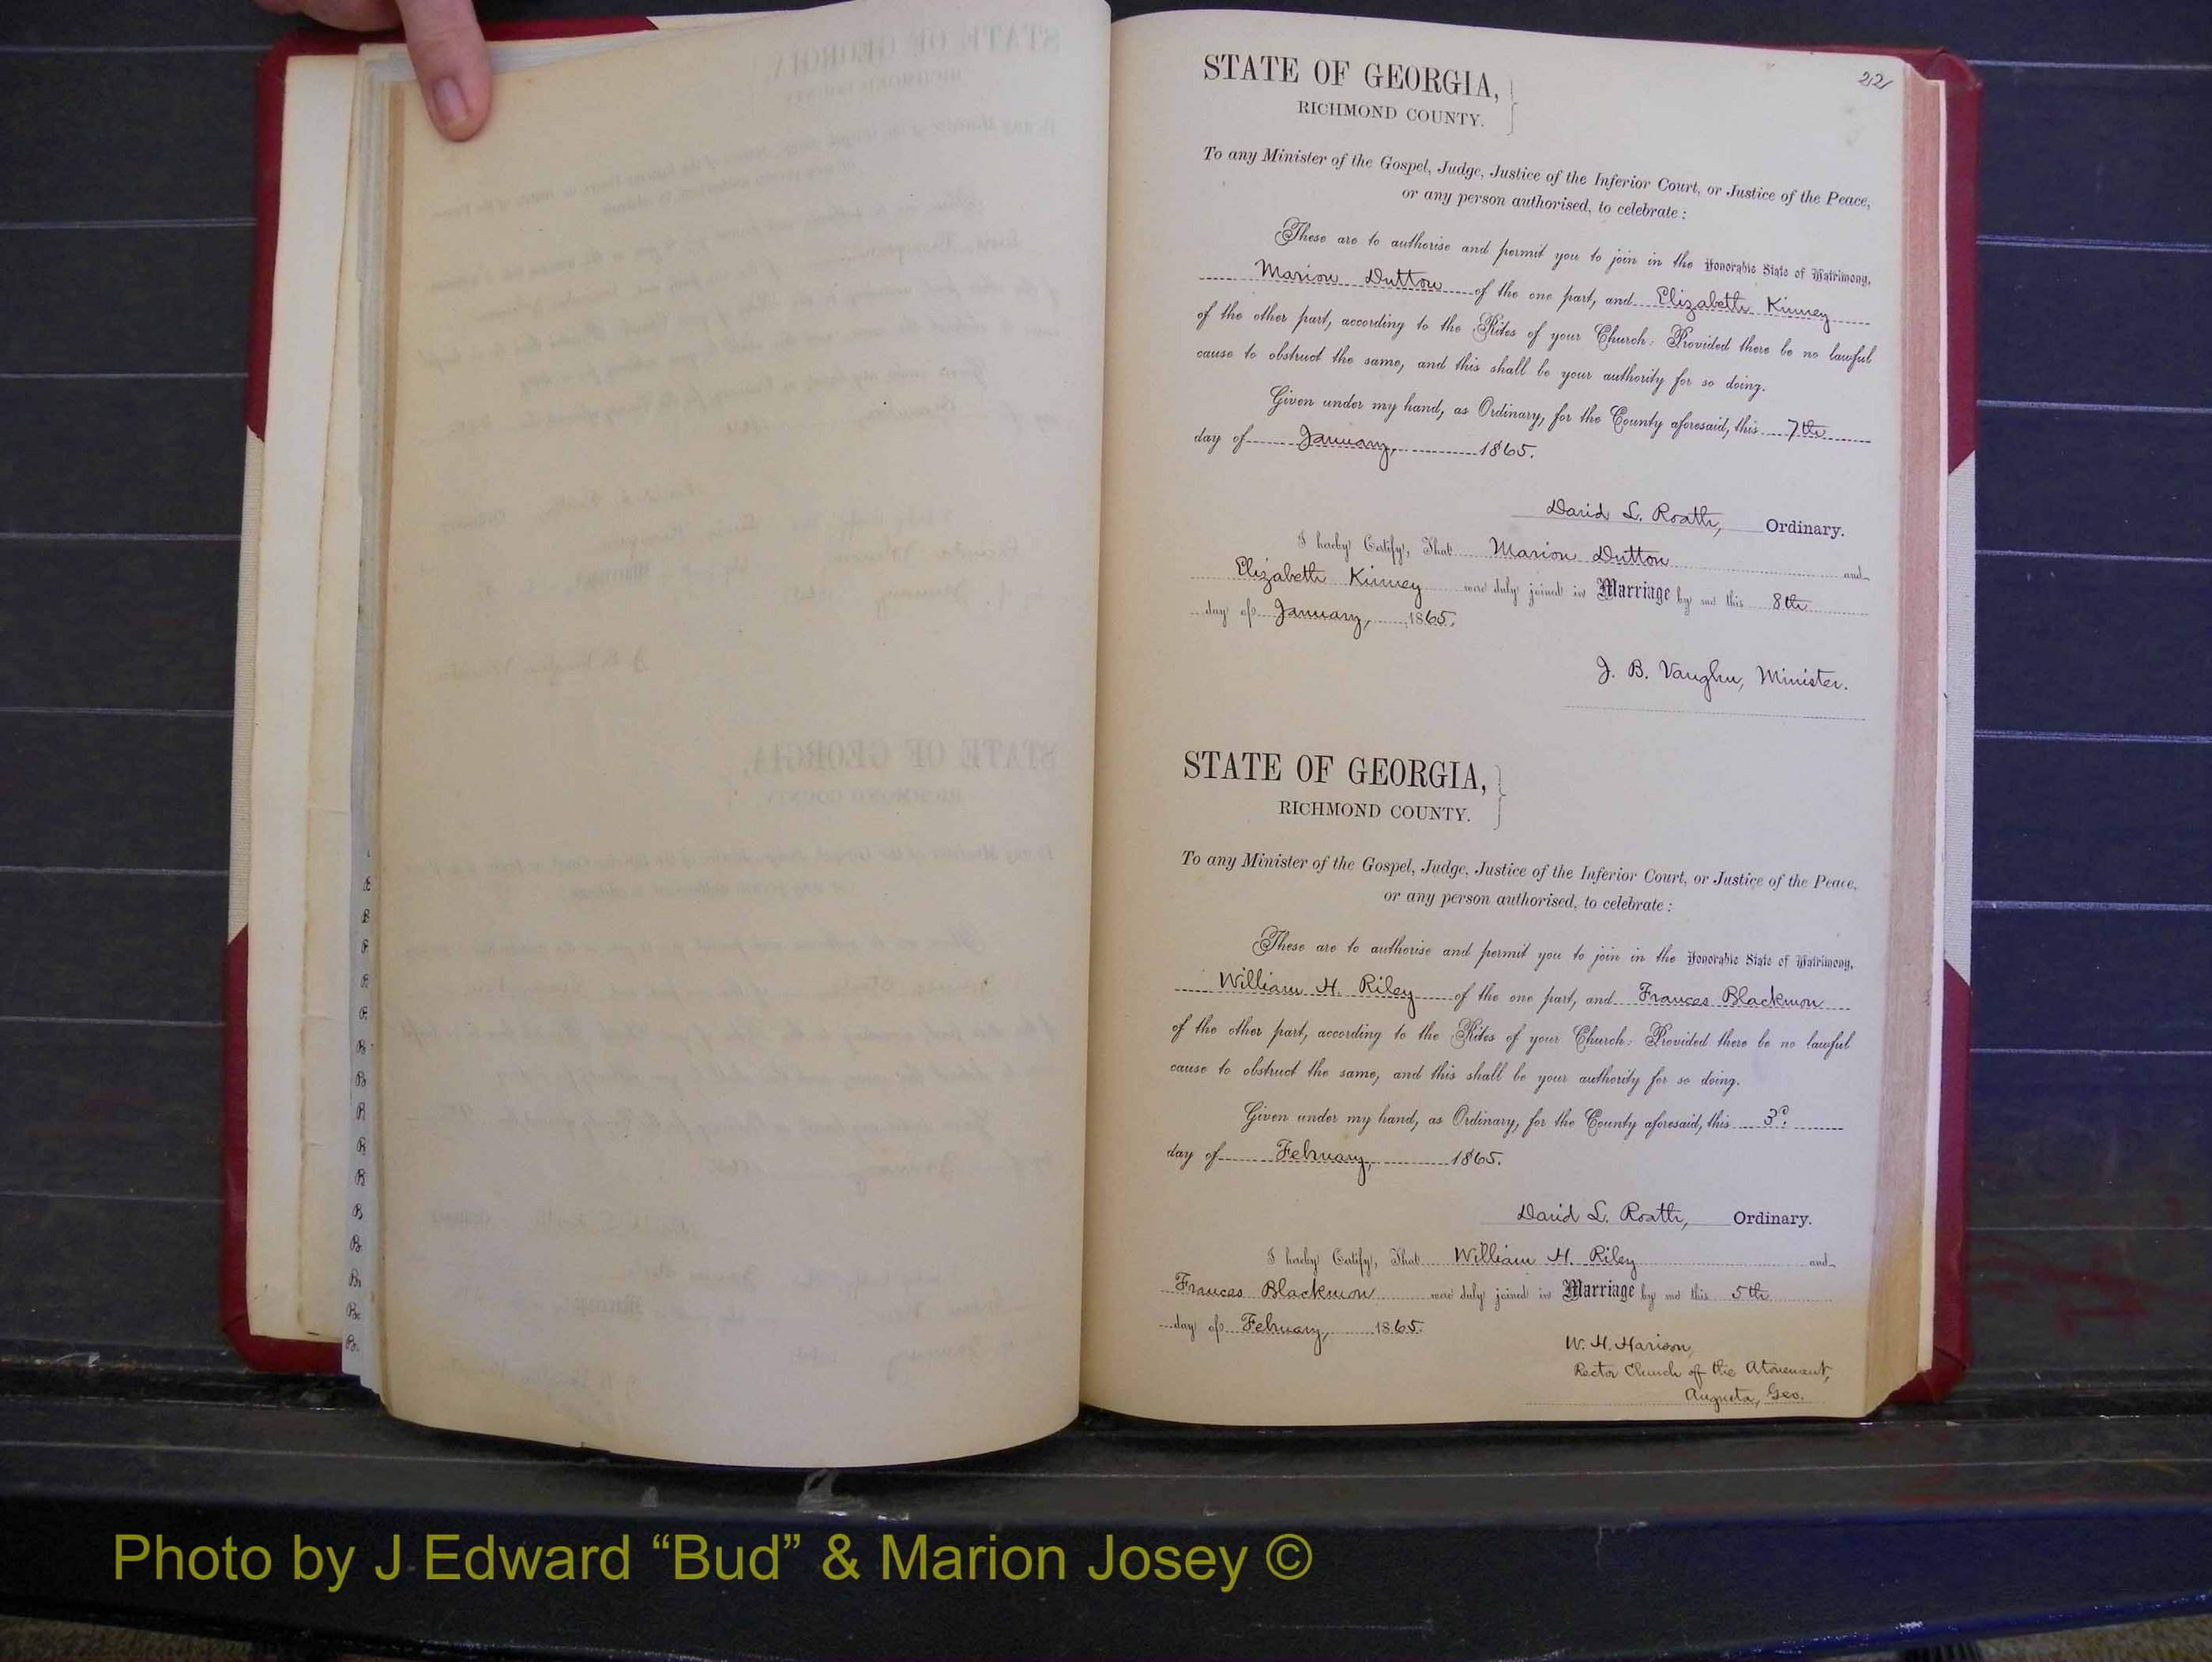 221
STATE OF GEORGIA,
RICHMOND COUNTY.
To any Minister of the Gospel, Judge, Justice of the Inferior Court, or Justice of the Peace,
or any person authorised, to celebrate :
These are to authorise and permit you to join in the Honorable State of Matrimony,
Marion Dutton of the one part, and Elizabeth Kinney
of the other part, according to the Rites of your Church: Provided there be no lawful
cause to obstruct the same, and this shall be your authority for so doing.
Given under my hand, as Ordinary, for the County aforesaid, this 7th
day of January, 1865.
David L. Roath, Ordinary.
I hereby Certify, That Marion Dutton and
Elizabeth Kinney were duly joined in Marriage by me this 8th
day of January, 1865.
J. B. Vaughn, Minister.
STATE OF GEORGIA,
RICHMOND COUNTY.
To any Minister of the Gospel, Judge, Justice of the Inferior Court, or Justice of the Peace,
or any person authorised, to celebrate :
These are to authorise and permit you to join in the Honorable State of Matrimony,
William H. Riley of the one part, and Frances Blackmon
of the other part, according to the Rites of your Church: Provided there be no lawful
cause to obstruct the same, and this shall be your authority for so doing.
Given under my hand, as Ordinary, for the County aforesaid, this 3d
day of February, 1865.
David L. Roath, Ordinary.
I hereby Certify, That William H. Riley and
Frances Blackmon were duly joined in Marriage by me this 5th
day of February, 1865.
W. H. Harison,
Rector Church of the Atonement,
Augusta, Geo.
Photo by J Edward “Bud” & Marion Josey ©